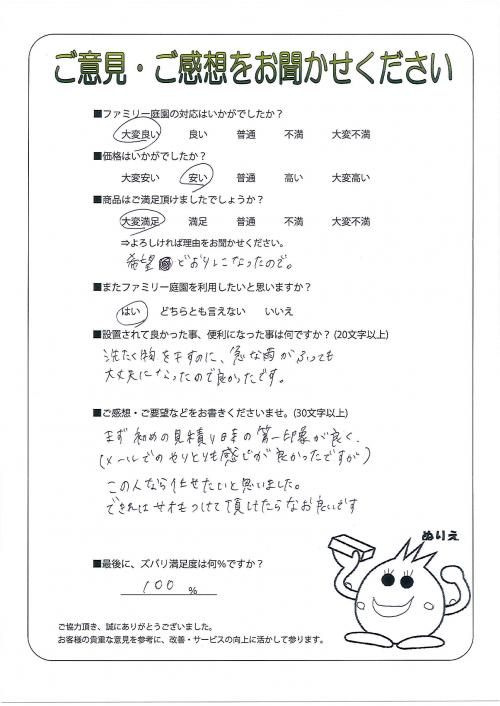 ご意見・ご感想をお聞かせください
■ファミリー庭園の対応はいかがでしたか？
大変良い　良い　普通　不満　大変不満
■価格はいかがでしたか？
大変安い　安い　普通　高い　大変高い
■商品はご満足頂けましたでしょうか？
大変満足　満足　普通　不満　大変不満
⇒よろしければ理由をお聞かせください。
希望どおりになったので。
■またファミリー庭園を利用したいと思いますか？
はい　どちらとも言えない　いいえ
■設置されて良かった事、便利になった事は何ですか？(20文字以上)
洗たく物を干すのに、急な雨がふっても
大丈夫になったので良かったです。
■ご感想・ご要望などをお書きくださいませ。(30文字以上)
まず初めの見積り日来の第一印象が良く、
(メールでのやりとりも感じが良かったですが)
この人なら任せたいと思いました。
できればサオもつけて頂けたらなお良いです
ぬりえ
■最後に、ズバリ満足度は何％ですか？
100 %
ご協力頂き、誠にありがとうございました。
お客様の貴重な意見を参考に、改善・サービスの向上に活かして参ります。